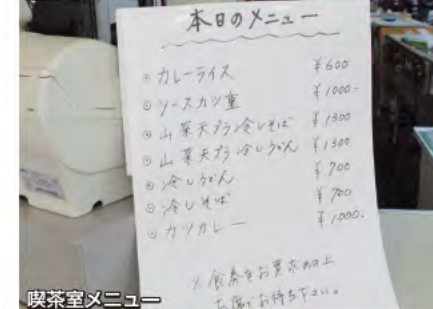 本日のメニュー
◎カレーライス ¥600
◎ソースカツ重 ¥1000-
◎山菜天プラ冷しそば ¥1300
◎山菜天プラ冷しうどん ¥1300
◎冷しうどん ¥700
◎冷しそば ¥700
◎カツカレー ¥1000-
食券をお買求めの上
お待ち下さい。
喫茶室メニュー